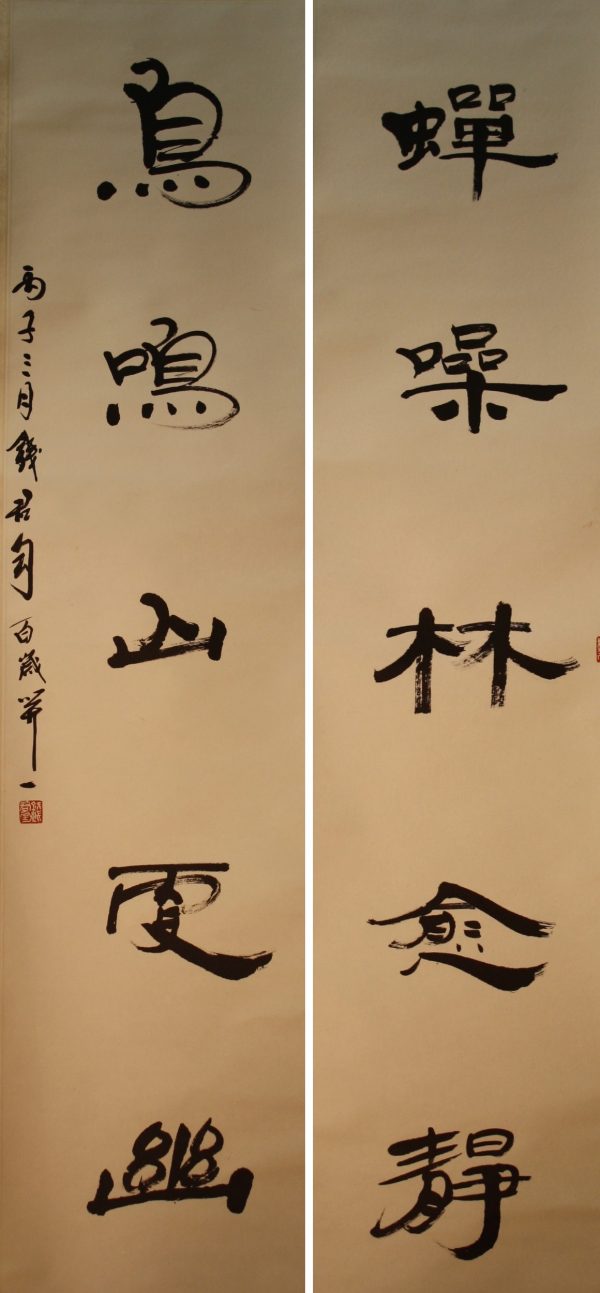 蟬噪林愈靜
鳥鳴山更幽
丙子三月錢君匋百歲笄一